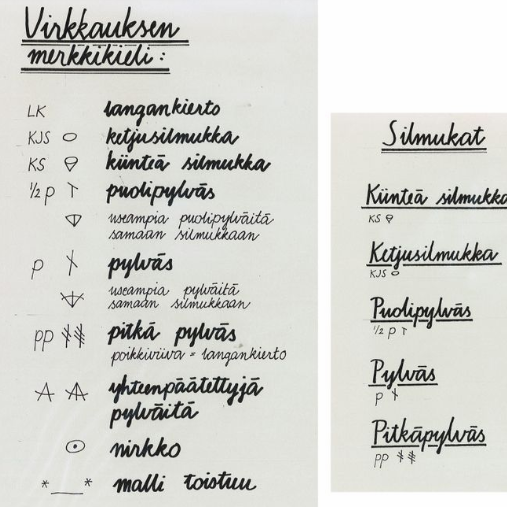 Virkkauksen
merkkikieli:
LK langankierto
KJS ketjusilmukka
KS kiinteä silmukka
½ p puolipylväs
useampia puolipylväitä
samaan silmukkaan
p pylväs
useampia pylväitä
samaan silmukkaan
pp pitkä pylväs
poikkiviiva = langankierto
yhteenpäätettyjä
pylväitä
nirkko
*___* malli toistuu
Silmukat
Kiinteä silmukka
KS
Ketjusilmukka
KJS
Puolipylväs
½ p
Pylväs
p
Pitkäpylväs
pp